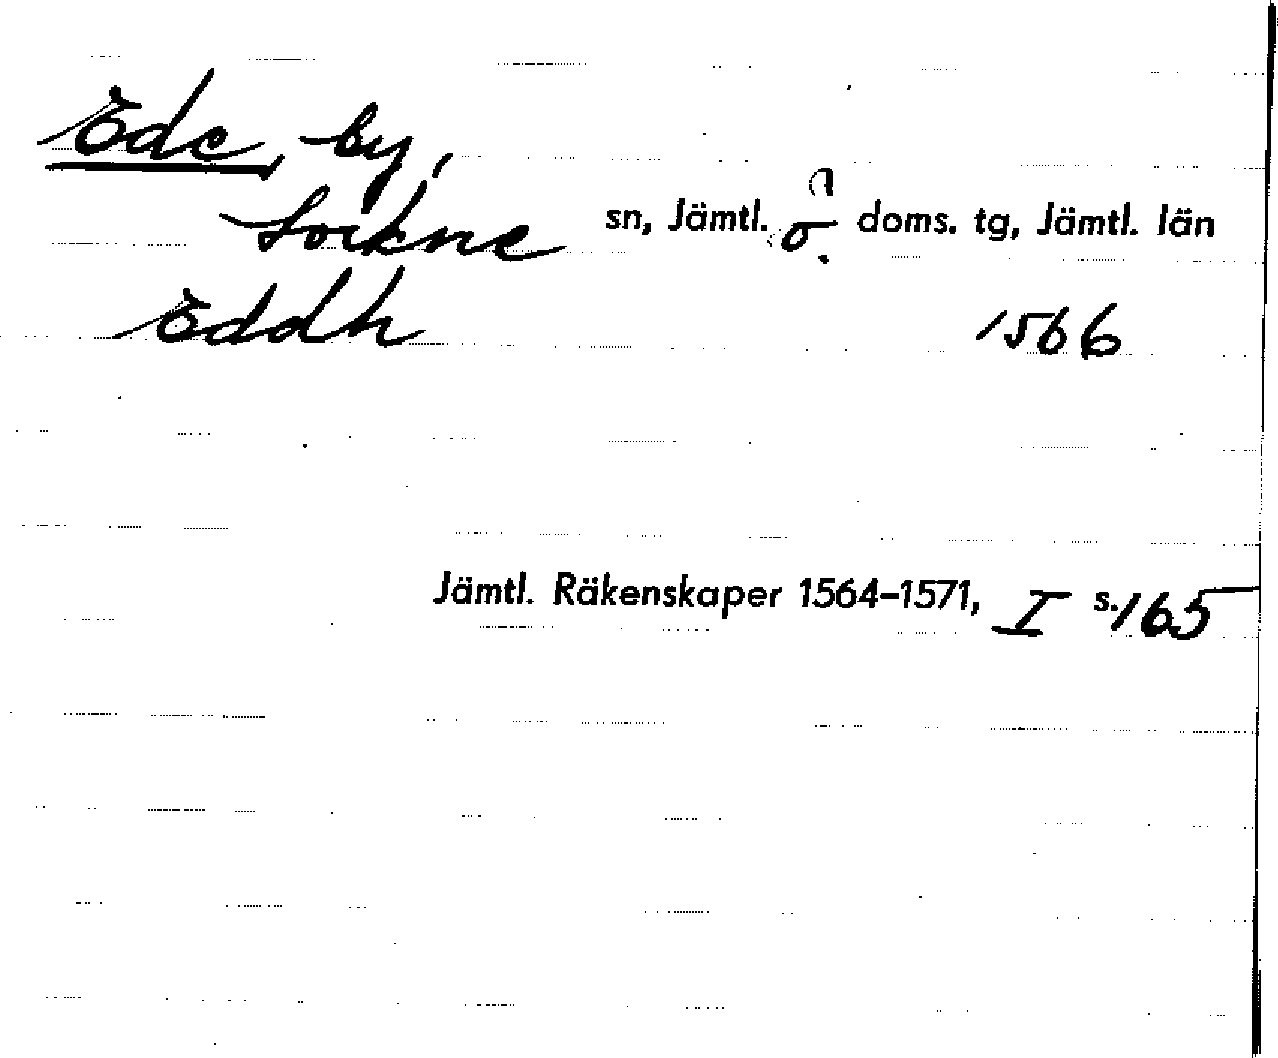 Ede, by,
Lockne sn, Jämtl. ö. doms. tg, Jämtl. län
Eddh 1566
Jämtl. Räkenskaper 1564-1571, I s. 165